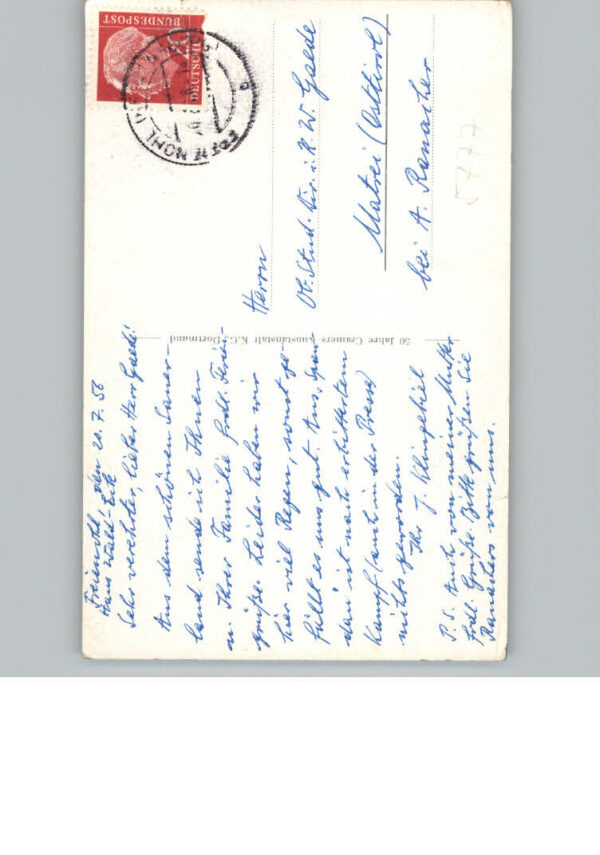 Freienohl, den 20.7.56
Haus Wald-Eck
Sehr verehrter, lieber Herr Gaede!
Aus dem schönen Sauer-
land sende ich Ihnen
u. Ihrer Familie frdl. Ferien-
grüße. Leider haben wir
hier viel Regen, sonst ge-
fällt es uns gut. Aus
dau ist nach erbittertem
Kampf (auch in der Presse)
nichts geworden.
Ihr J. Klingebiel
P.S. Auch von meiner Mutter
frdl. Grüße. Bitte grüßen Sie
Ranachers von uns.
50 Jahre Cramers Kunstanstalt K.G., Dortmund
DEUTSCHE
BUNDESPOST
20
FREIENOHL
Herrn
Ob. Stud. Dir. i. R. W. Gaede
Matrei (Osttirol)
bei A. Ranacher
5477